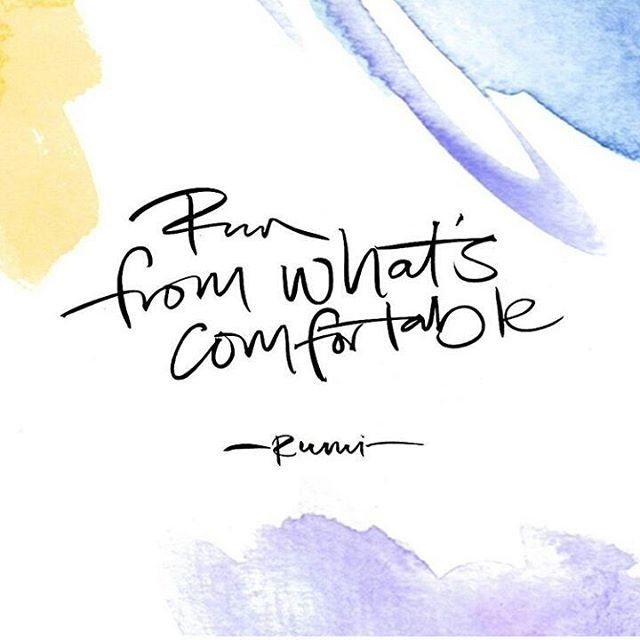 Run
from what's
comfortable
—Rumi—